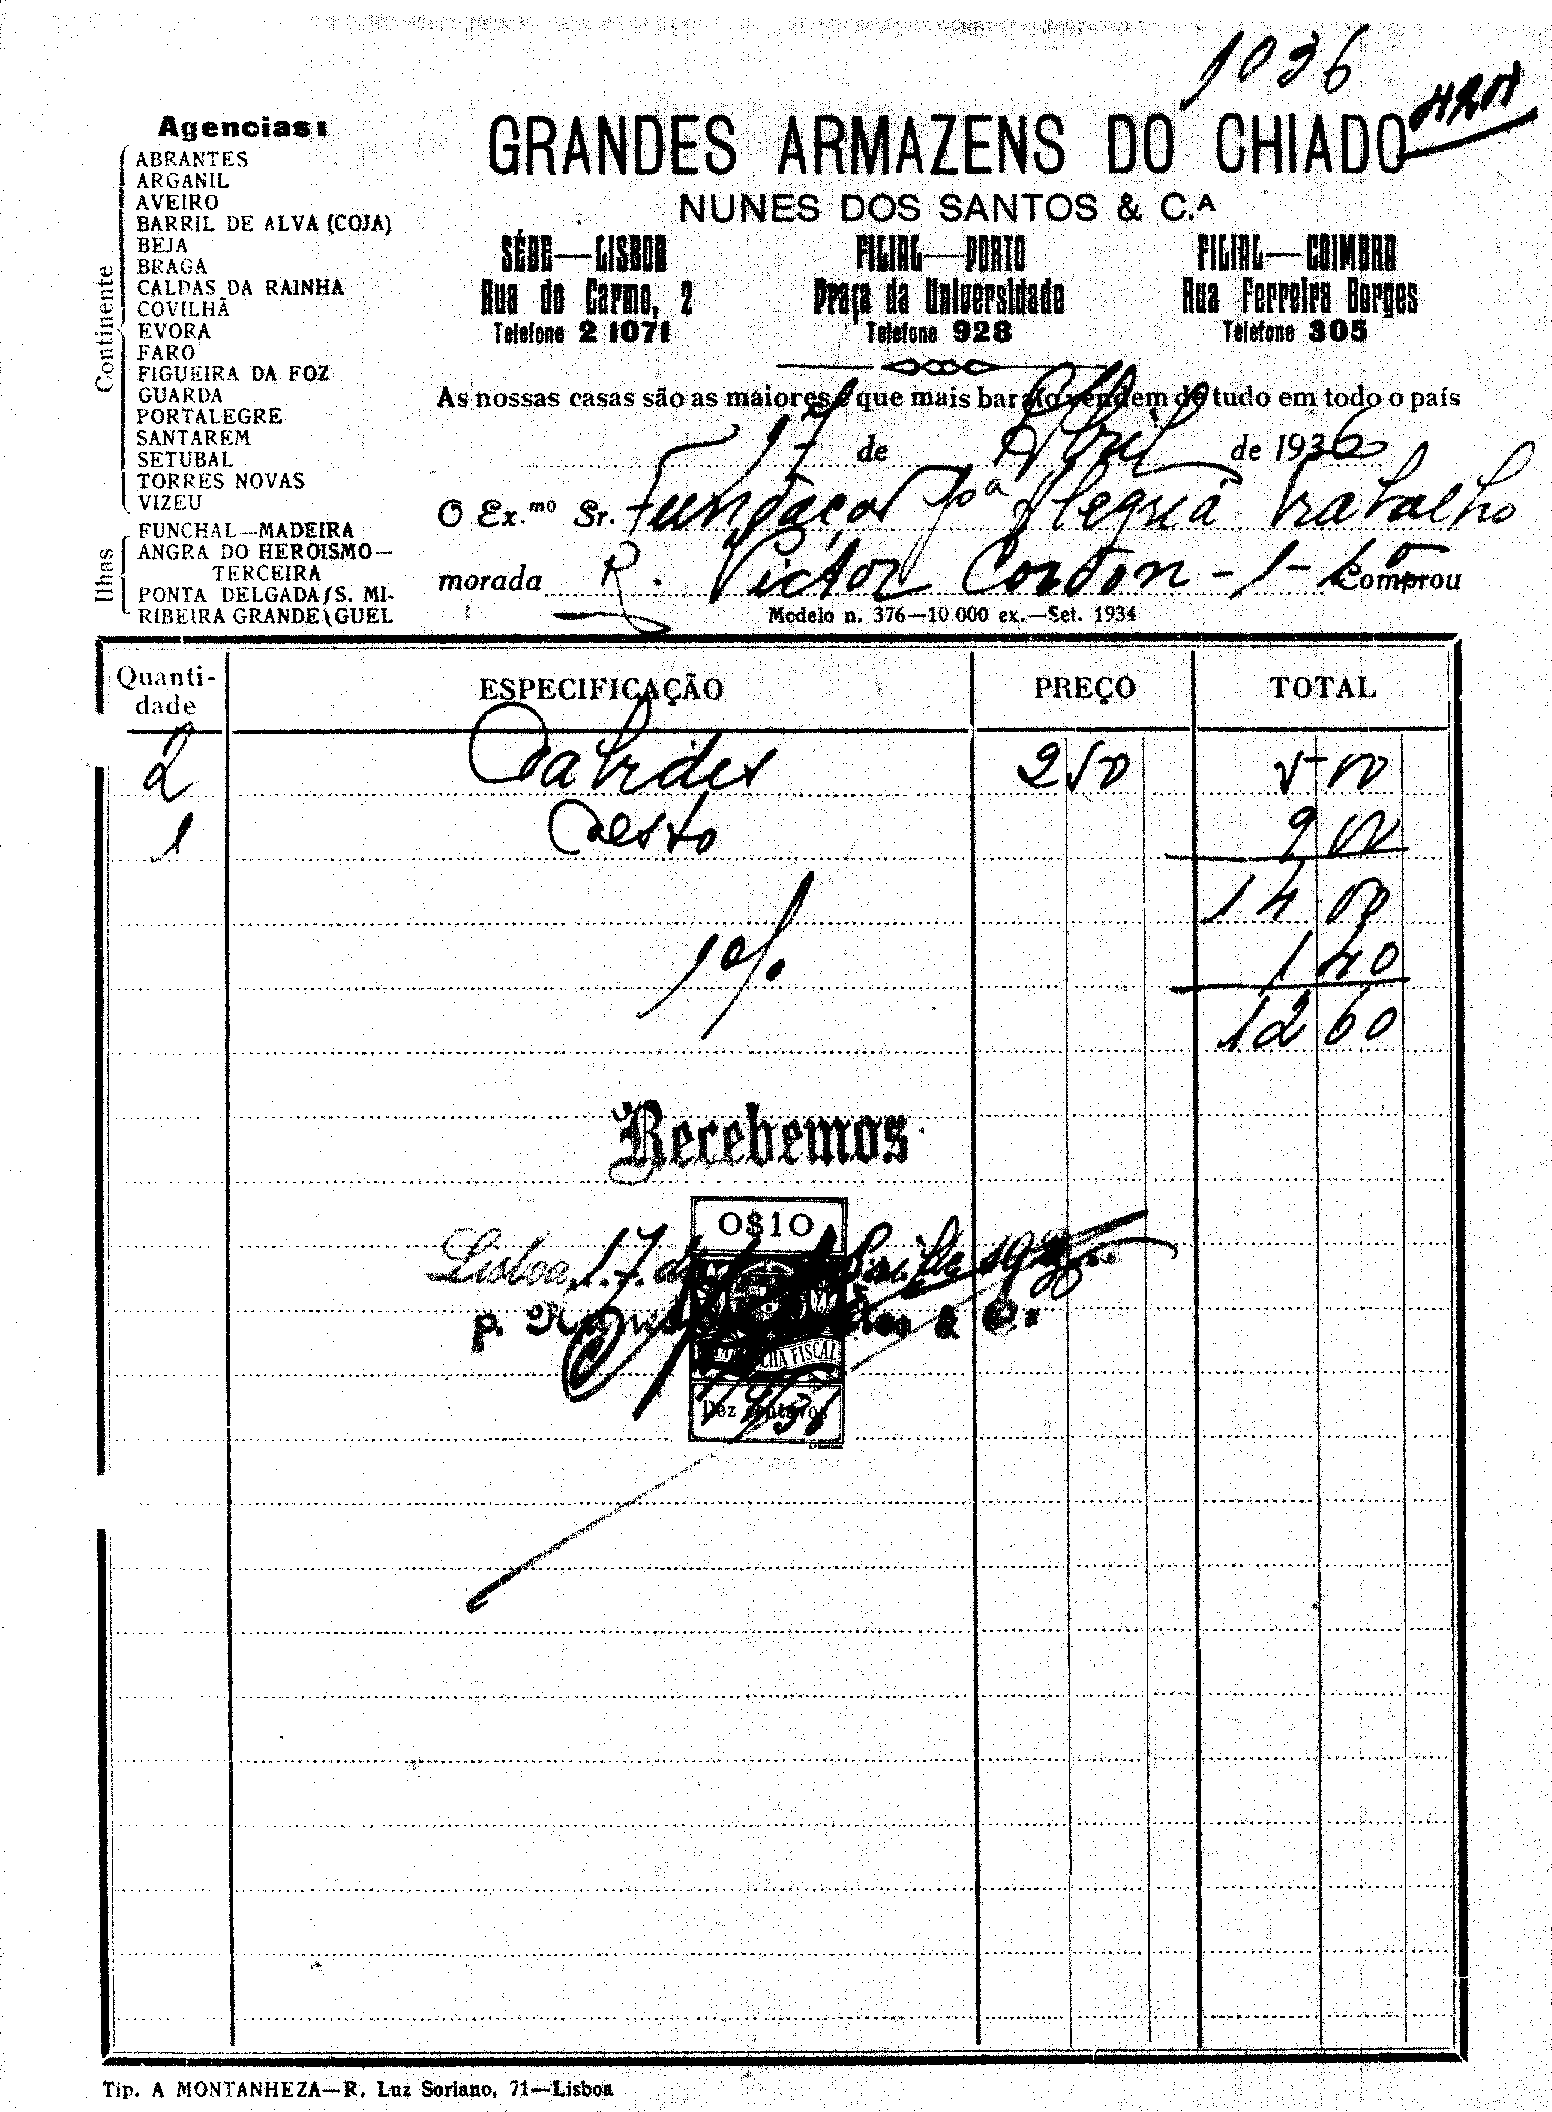 1036
HRM
GRANDES ARMAZENS DO CHIADO
NUNES DOS SANTOS & C.A
SÉDE—LISBOA
Rua do Carmo, 2
Telefone 2 1071
FILIAL—PORTO
Praça da Universidade
Telefone 928
FILIAL—COIMBRA
Rua Ferreira Borges
Telefone 305
Agencias:
Continente
ABRANTES
ARGANIL
AVEIRO
BARRIL DE ALVA (COJA)
BEJA
BRAGA
CALDAS DA RAINHA
COVILHÃ
EVORA
FARO
FIGUEIRA DA FOZ
GUARDA
PORTALEGRE
SANTAREM
SETUBAL
TORRES NOVAS
VIZEU
Ilhas
FUNCHAL—MADEIRA
ANGRA DO HEROISMO—
TERCEIRA
PONTA DELGADA S. MI-
RIBEIRA GRANDE GUEL
As nossas casas são as maiores e que mais barato vendem de tudo em todo o país
17 de Abril de 1936
O Ex.mo Sr. Fundação pª Alegria Trabalho
morada R. Victor Cordon - 1 - 1º Comprou
Modelo n. 376—10 000 ex.—Set. 1934
Quanti-
dade
ESPECIFICAÇÃO
PREÇO
TOTAL
2 Cabides 250 500
1 Cesto 900
1400
10% 140
1260
Recebemos
0$10
Lisboa, 17 de Abril de 1936
p. Nunes & C.a
FISCAL
Dez centavos
Tip. A MONTANHEZA—R. Luz Soriano, 71—Lisboa